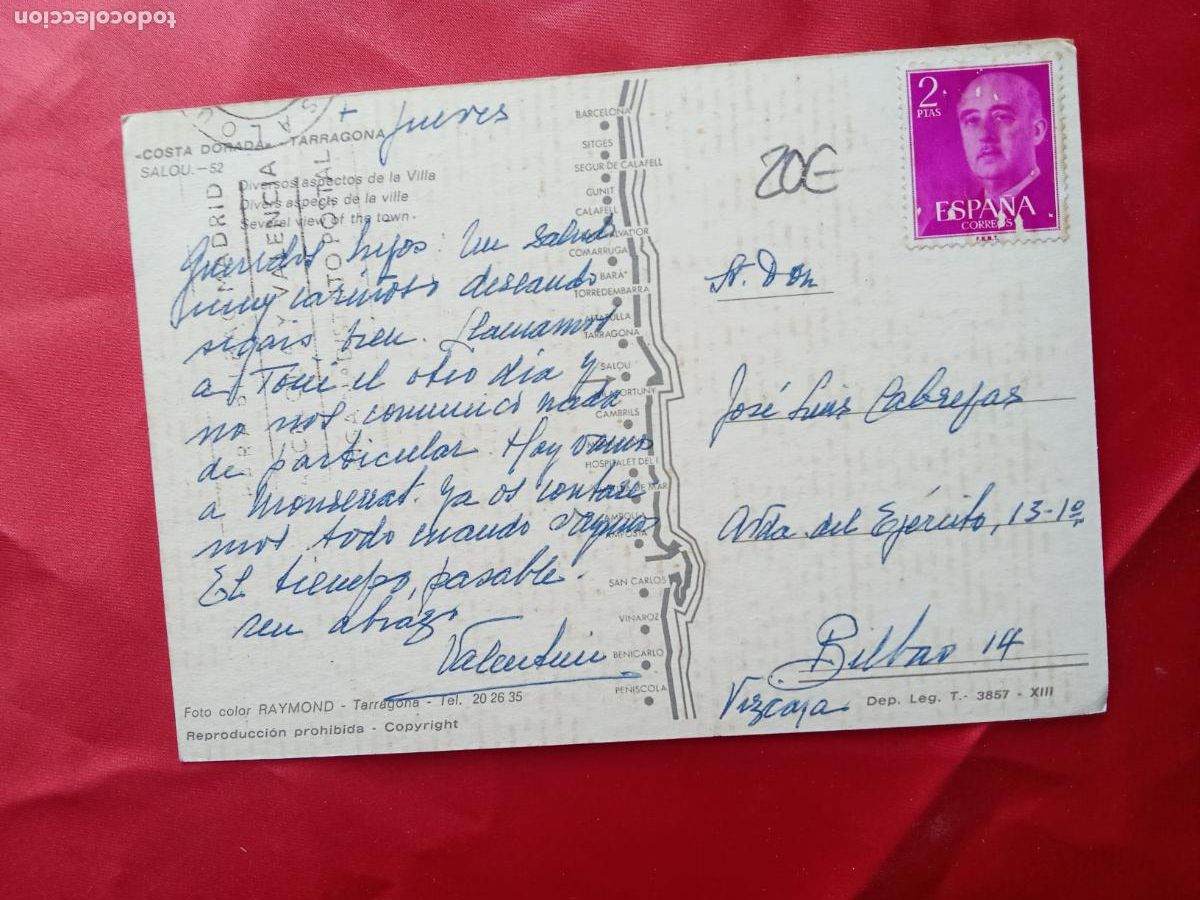 todocoleccion
+ Jueves
«COSTA DORADA» - TARRAGONA
SALOU.-52
Diversos aspectos de la Villa
Divers aspects de la ville
Several view of the town.
Queridos hijos: Un saludo
muy cariñoso deseando
sigais bien. Llamamos
a Toni el otro día y
no nos comunicó nada
de particular. Hoy vamos
a Monserrat. Ya os contare
mos todo cuando vayamos
El tiempo, pasable.
un abrazo
Valentin
Foto color RAYMOND - Tarragona - Tel. 20 26 35
Reproducción prohibida - Copyright
MADRID
VALENCIA
POSTAL
BARCELONA
SITGES
SEGUR DE CALAFELL
CUNIT
CALAFELL
SALVADOR
COMARRUGA
BARÁ
TORREDEMBARRA
ALTAFULLA
TARRAGONA
SALOU
FORTUNY
CAMBRILS
HOSPITALET DEL I.
DE MAR
AMPOLLA
AMPOSTA
SAN CARLOS
VINAROZ
BENICARLO
PEÑISCOLA
20€
2
PTAS
ESPAÑA
CORREOS
F.N.M.T.
Sr. Don
José Luis Cabrejas
Avda. del Ejército, 13-1º
Bilbao 14
Vizcaya
Dep. Leg. T. - 3857 - XIII